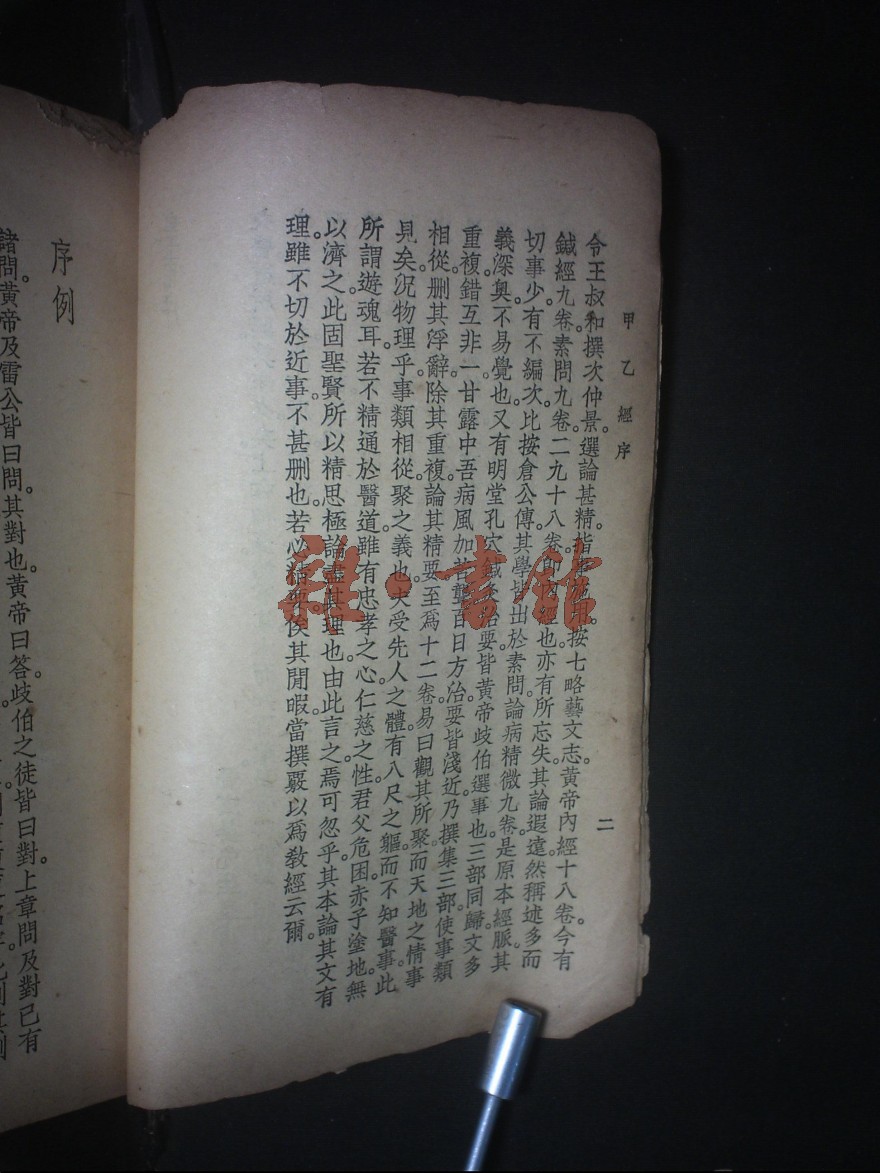 甲乙經序
二
令王叔和撰次仲景。選論甚精。指事施用。按七略藝文志。黃帝內經十八卷。今有
鍼經九卷。素問九卷。二九十八卷。卽內經也。亦有所忘失。其論遐遠。然稱述多而
切事少。有不編次。比按倉公傳。其學皆出於素問。論病精微。九卷是原本經脈。其
義深奧。不易覺也。又有明堂孔穴鍼灸治要。皆黃帝歧伯選事也。三部同歸。文多
重複。錯互非一。甘露中。吾病風加苦聾。百日方治。要皆淺近。乃撰集三部。使事類
相從。刪其浮辭。除其重複。論其精要。至爲十二卷。易曰觀其所聚。而天地之情事
見矣。況物理乎。事類相從。聚之義也。夫受先人之體。有八尺之軀。而不知醫事。此
所謂遊魂耳。若不精通於醫道。雖有忠孝之心。仁慈之性。君父危困。赤子塗地。無
以濟之。此固聖賢所以精思極論。盡其理也。由此言之。焉可忽乎。其本論其文有
理。雖不切於近事。不甚刪也。若必精要。俟其閒暇。當撰覈以爲教經云爾。
序例
諸問。黃帝及雷公皆曰問。其對也。黃帝曰答。歧伯之徒皆曰對。上章問及對已有
雜·書館